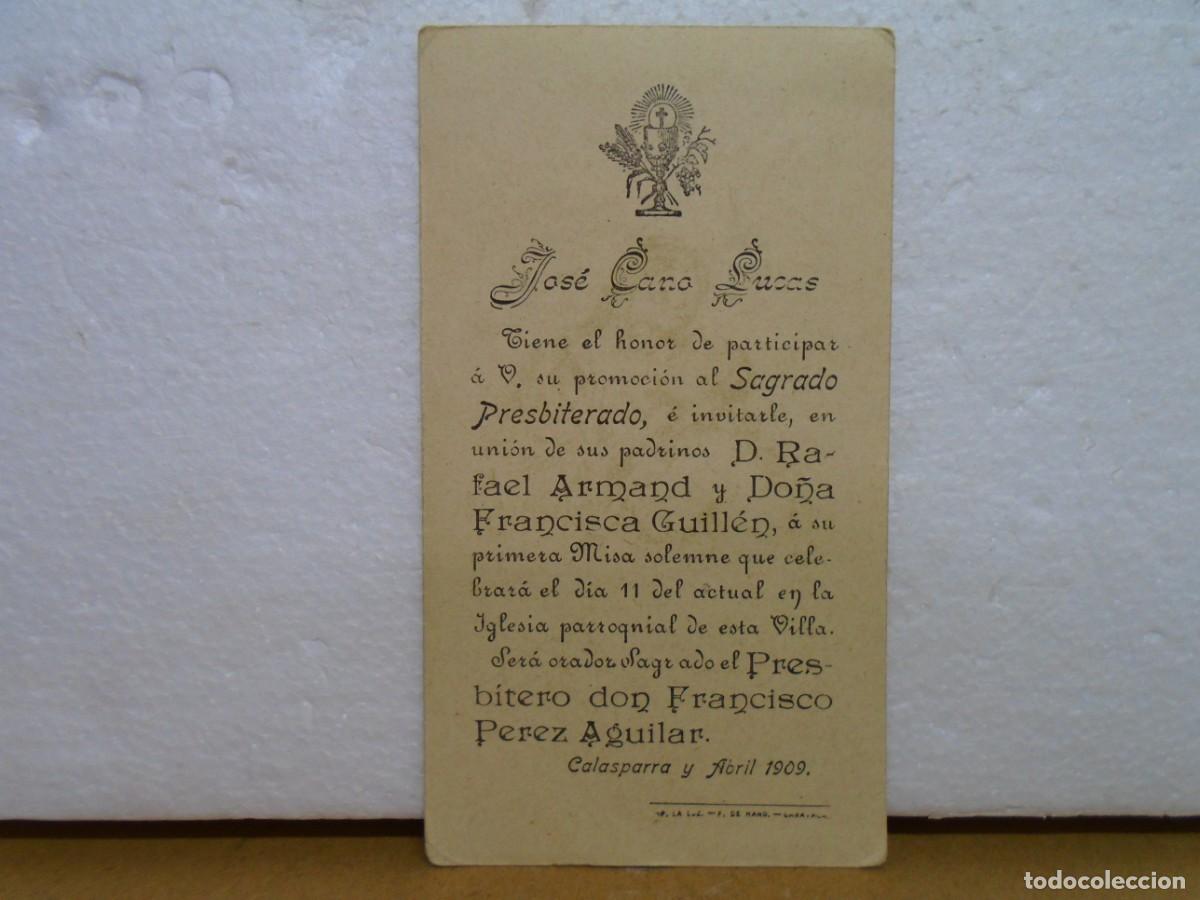 José Cano Lucas
Tiene el honor de participar
á V. su promoción al Sagrado
Presbiterado, é invitarle, en
unión de sus padrinos D. Ra-
fael Armand y Doña
Francisca Guillén, á su
primera Misa solemne que cele-
brará el día 11 del actual en la
Iglesia parroqnial de esta Villa.
Será orador Sagrado el Pres-
bítero don Francisco
Perez Aguilar.
Calasparra y Abril 1909.
LA LUZ. — F. DE HARO. —
todocoleccion